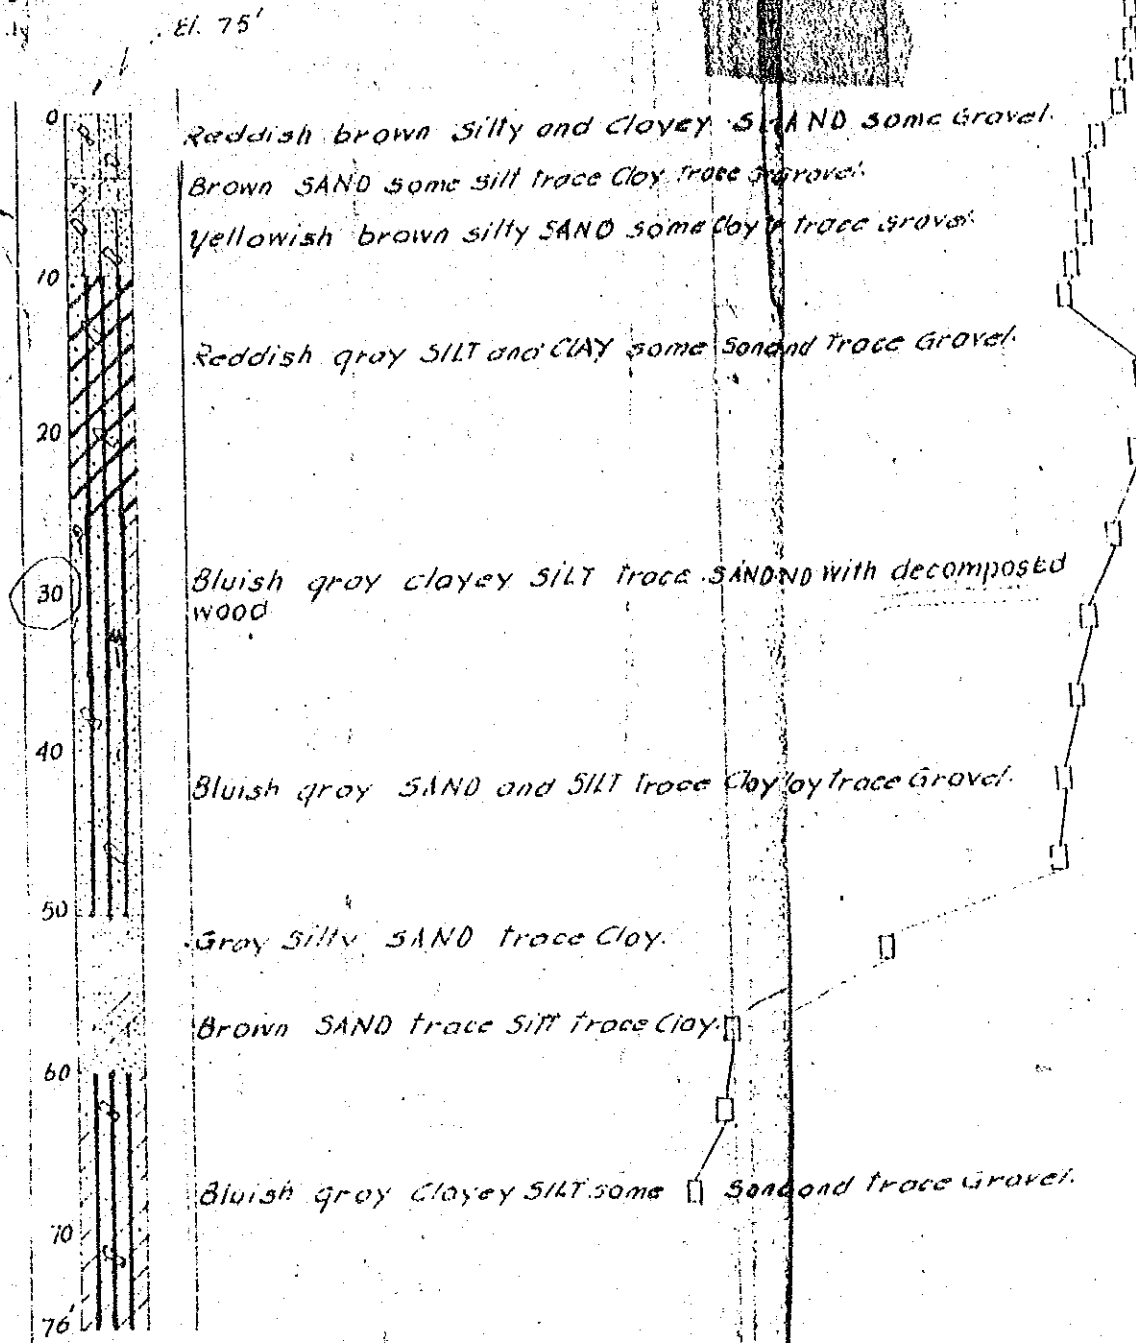 El. 75'
0
Reddish brown Silty and Clayey SAND some Gravel.
Brown SAND some Silt trace Clay trace Gravel.
Yellowish brown silty SAND some Clay trace Gravel.
10
Reddish gray SILT and CLAY some Sand trace Gravel.
20
30
Bluish gray clayey SILT trace SAND with decomposed
wood
40
Bluish gray SAND and SILT trace Clay trace Gravel.
50
Gray Silty SAND trace Clay.
Brown SAND trace Silt trace Clay.
60
Bluish gray Clayey SILT some Sand trace Gravel.
70
76'